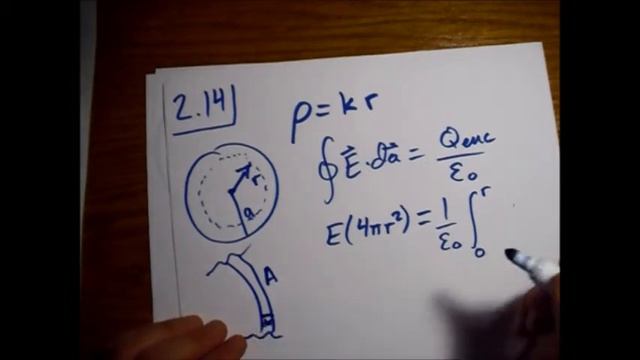 2.14
ρ = k r
∮ E⃗ · da⃗ = Qenc / ε₀
E(4πr²) = 1/ε₀ ∫₀ʳ
r
a
A